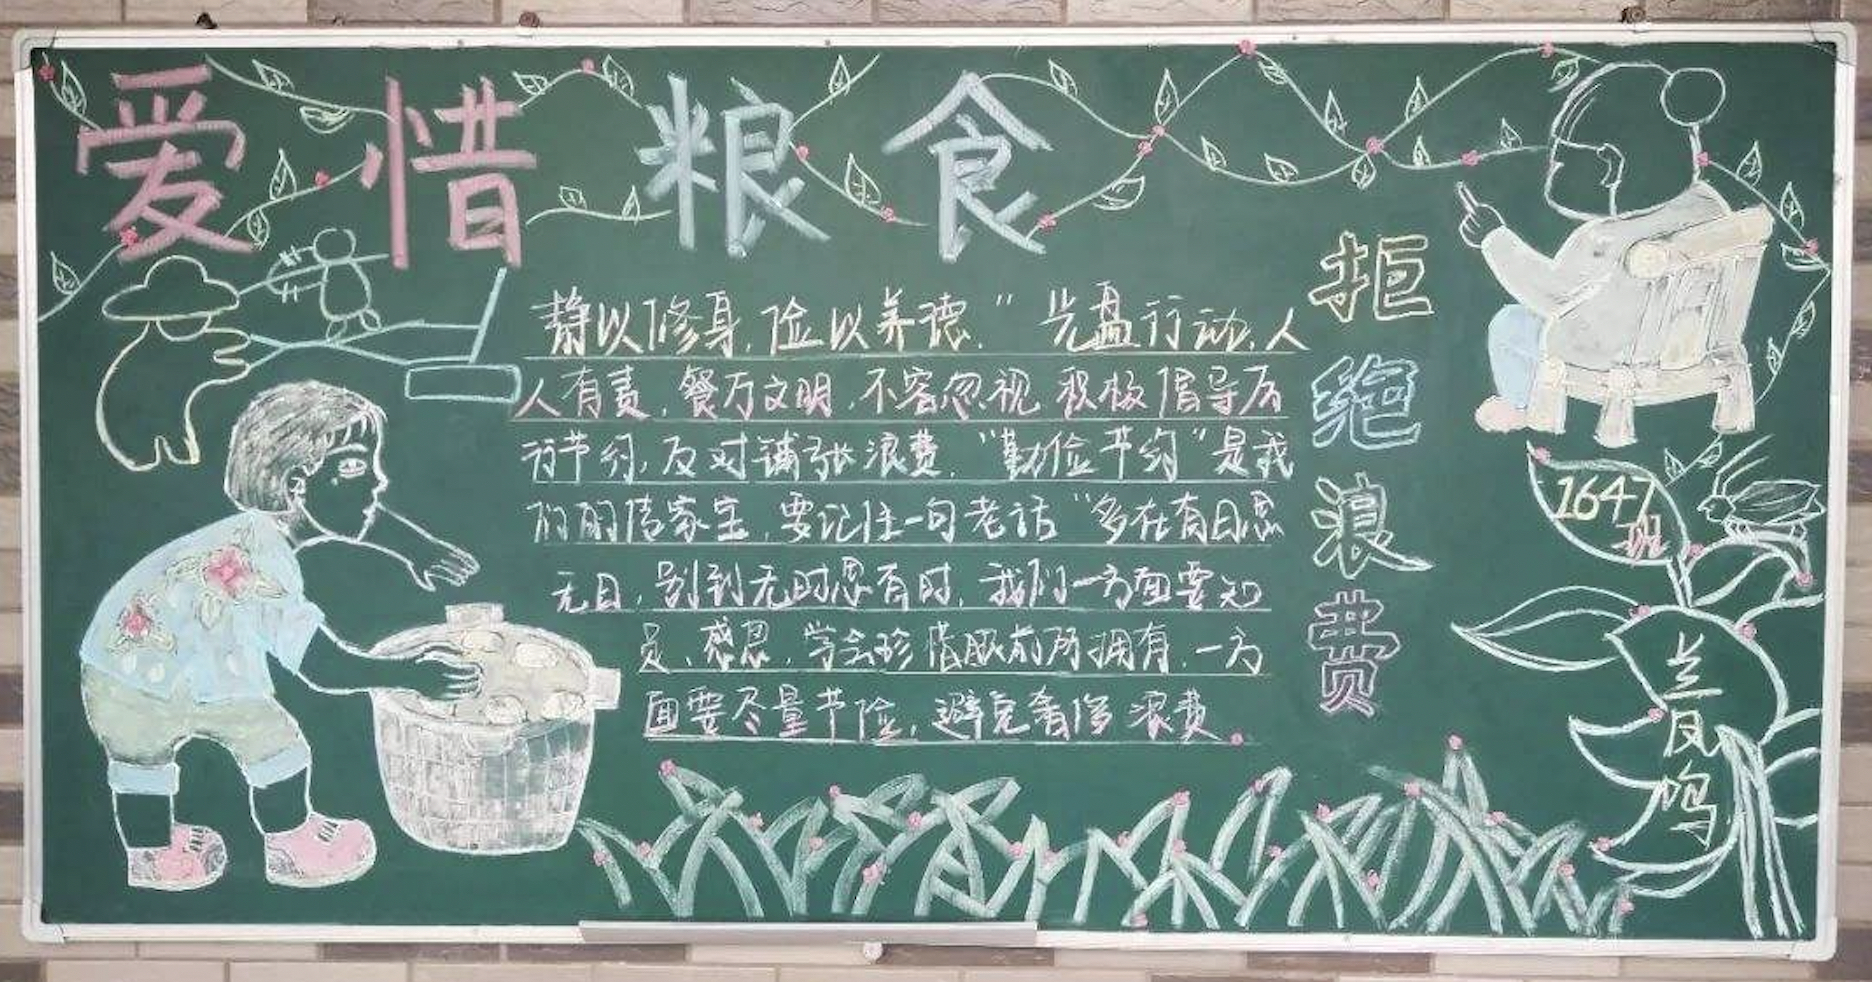 爱惜粮食
静以修身,俭以养德."光盘行动,人
人有责,餐厅文明,不容忽视 积极倡导厉
行节约,反对铺张浪费."勤俭节约"是我
们的传家宝,要记住一句老话"多在有日思
无日,别到无时思有时,我们一方面要知
足,感恩,学会珍惜眼前所拥有,一方
面要尽量节俭,避免奢侈浪费.
拒绝浪费
1647班
兰凤鸣